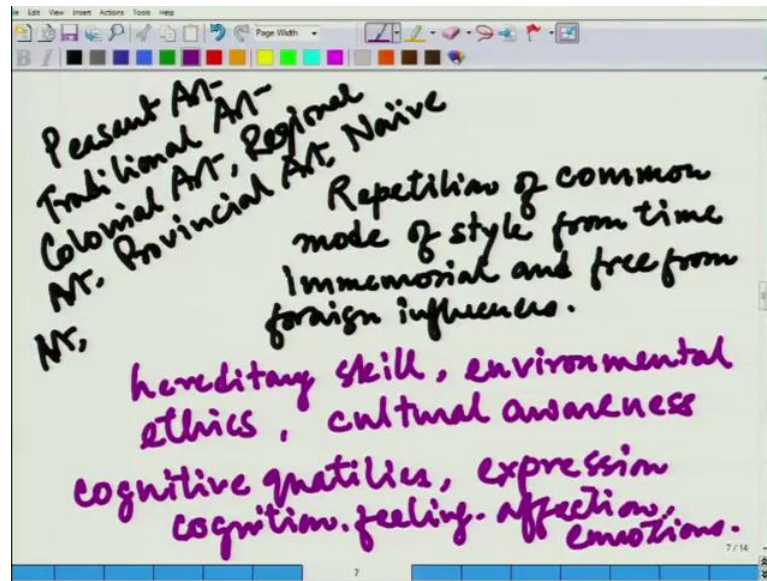 File Edit View Insert Actions Tools Help
Page Width
B I
Peasant Art
Traditional Art
Colonial Art, Regional
Art. Provincial Art, Naïve
Art,
Repetition of common
mode of style from time
Immemorial and free from
foraign influences.
hereditary skill, environmental
ethics, cultural awareness
cognitive qualities, expression
cognition. feeling. affection,
emotions.
7/14
7